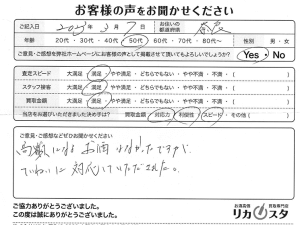 お客様の声をお聞かせください
ご記入日 2023年3月7日 お住いの都道府県
年齢 20代・30代・40代・50代・60代・70代・80代〜 性別 男・女
ご意見・ご感想を弊社ホームページにお客様の声として掲載させて頂いてもよろしいでしょうか? Yes・No
査定スピード 大満足・満足・やや満足・どちらでもない・やや不満・不満・( )
スタッフ接客 大満足・満足・やや満足・どちらでもない・やや不満・不満・( )
買取金額 大満足・満足・やや満足・どちらでもない・やや不満・不満・( )
当店をお選びいただきました決め手は? 買取金額・対応力・利便性・スピード・その他( )
ご意見・ご感想などぜひお聞かせください
高齢になり お酒
ていねいに対応していただきました。
ご協力ありがとうございました。
この度は誠にありがとうございました。
お酒高価買取専門店
リカスタ